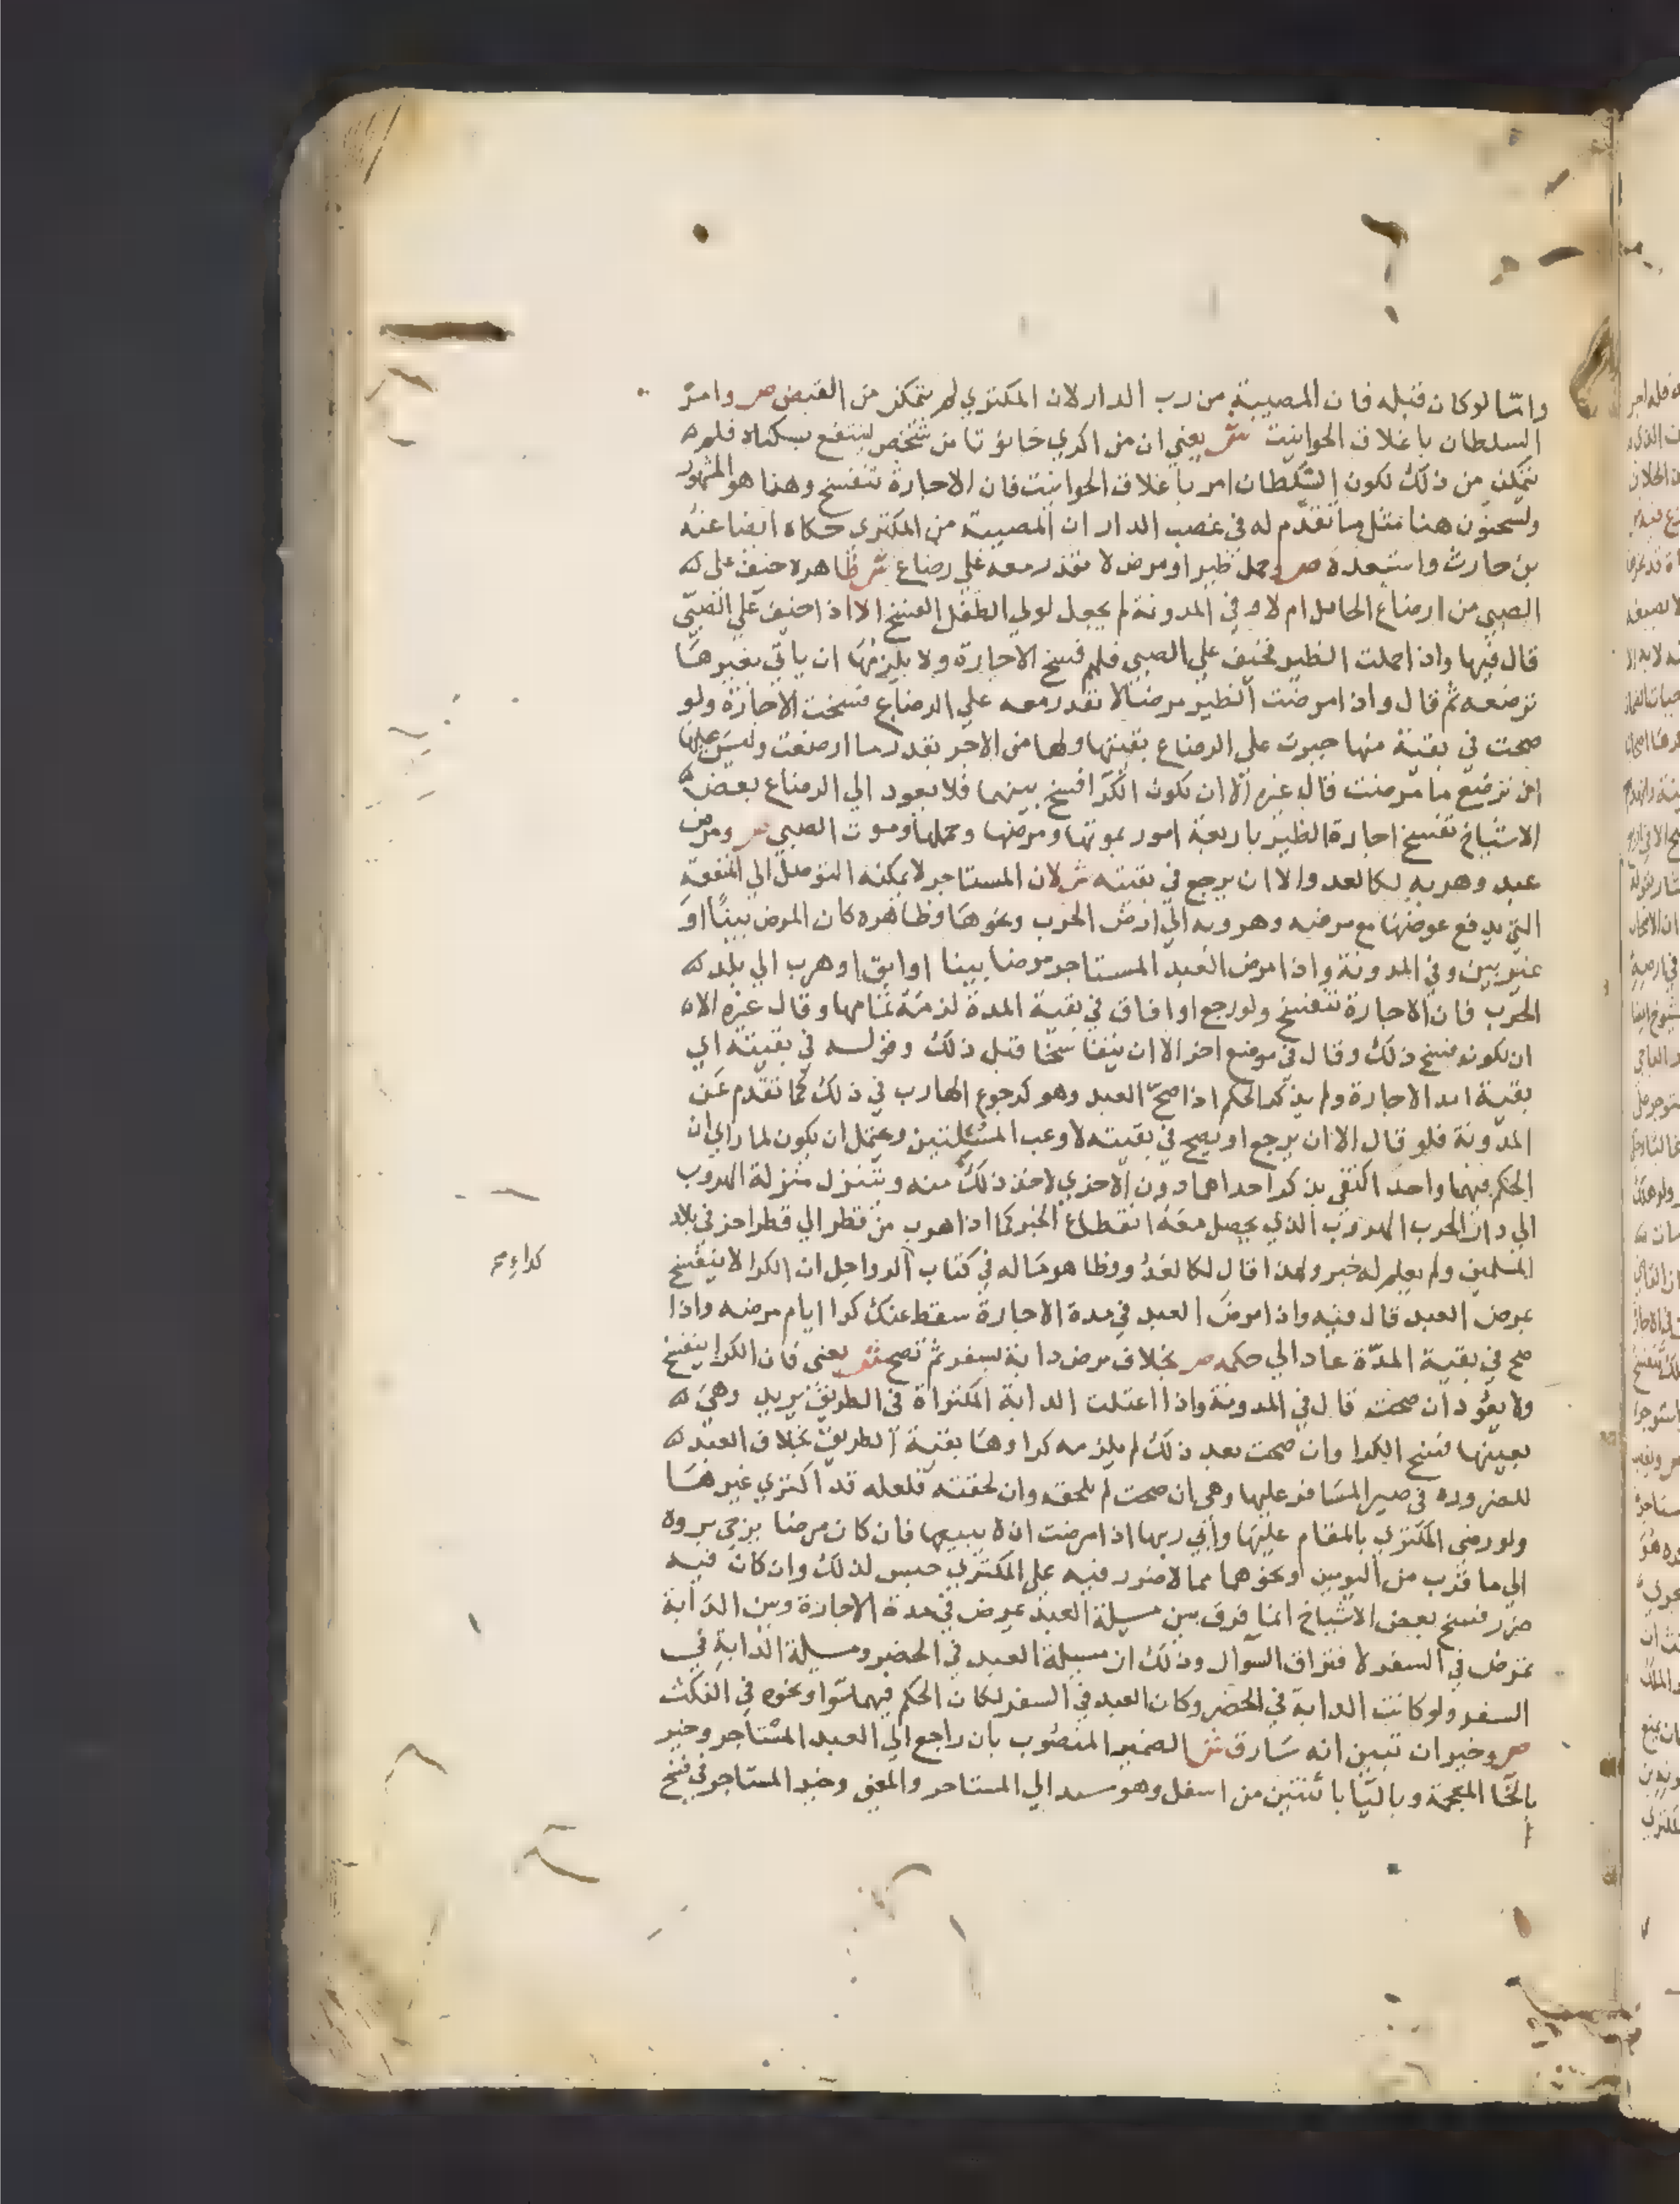 وامّا لو كان قبله فان المصيبة من رب الدار لان المكتري لم يتمكن من القبض ص وامر
السلطان باغلاق الحوانيت ش يعني ان من اكري حانوتا من شخص لينتفع بسكناه فلم
يتمكن من ذلك لكون السلطان امر باغلاق الحوانيت فان الاجارة تنفسخ وهذا هو المشهور
ولسحنون هنا مثل ما تقدم له في غصب الدار ان المصيبة من المكتري حكاه ايضا عنه
بن حارث واستبعده ص وحمل ظير او مرض لا تقدر معه على رضاع ش ظاهره خيف على
الصبي من ارضاع الحامل ام لا وفي المدونة لم يجعل لولي الطفل الفسخ الا اذا خيف على الصبي
قال فيها واذا حملت الظير فخيف على الصبي فلهم فسخ الاجارة ولا يلزمها ان ياتي بغيرها
ترضعه ثم قال واذا مرضت الظير مرضا لا تقدر معه على الرضاع فسخت الاجارة ولو
صحت في بقية منها جبرت على الرضاع بقيتها ولها من الاجر بقدر ما ارضعت وليس عليها
ان ترضع ما مرضت قال غيره الا ان تكون الكرا فسخ بينهما فلا يعود الي الرضاع بعض
الاشياخ تفسخ اجارة الظير باربعة امور بموتها ومرضها وحملها وموت الصبي ص ومرض
عبد وهربه لكالعدو الا ان يرجع في بقيته ش لان المستاجر لا يمكنه التوصل الي المنفعة
التي يدفع عوضها مع مرضه وهروبه الي ارض الحرب ونحوها وظاهره كان المرض بينا او
غير بين وفي المدونة واذا مرض العبد المستاجر مرضا بينا او ابق او هرب الي بلد
الحرب فان الاجارة تنفسخ ولو رجع او افاق في بقية المدة لزمه تمامها وقال غيره الا
ان يكونو فسخ ذلك وقال في موضع اخر الا ان يتفاسخا قبل ذلك وقوله في بقيته اي
بقية امد الاجارة ولم يذكر الحكم اذا صح العبد وهو كرجوع الهارب في ذلك كما تقدم عن
المدونة فلو قال الا ان يرجع او يصح في بقيته لاوعب المسئلتين ويحتمل ان يكون لما راي ان
الحكم فيهما واحد اكتفى بذكر احداهما دون الاخري لاخذ ذلك منه ويتنزل منزلة الهروب
الي دار الحرب الهروب الذي يحصل معه انقطاع الخبر كما اذا هرب من قطر الي قطر اخر في بلاد
المسلمين ولم يعلم له خبر ولهذا قال لكالعدو وظاهر ما له في كتاب الرواحل ان الكرا لا ينفسخ
بمرض العبد قال فيه واذا مرض العبد في مدة الاجارة سقط عنك كرا ايام مرضه واذا
صح في بقية المدّة عاد الي حكمه ص بخلاف مرض دابة بسفر ثم تصح ش يعني فان الكرا ينفسخ
ولا يعود ان صحت قال في المدونة واذا اعتلت الدابة المكتراة في الطريق يريد وهي
بعينها فسخ الكرا وان صحت بعد ذلك لم يلزمه كراوها بقية الطريق بخلاف العبد
للضرورة في صبر المسافر عليها وهي ان صحت لم تلحقه وان لحقته فلعله قد اكتري غيرها
ولو رضي المكتري بالمقام عليها وأبي ربها اذا مرضت الا بيعها فان كان مرضا يرجي بروه
الي ما قرب من اليومين او نحوهما مما لا ضرر فيه على المكتري حبس لذلك وان كان فيه
ضرر فسخ بعض الاشياخ انما فرق بين مسيلة العبد يمرض في مدة الاجارة وبين الدابة
تمرض في السفر لافتراق السوال وذلك ان مسيلة العبد في الحضر ومسيلة الدابة في
السفر ولو كانت الدابة في الحضر وكان العبد في السفر لكان الحكم فيهما سوا ونحوه في النكت
ص وخير ان تبين انه سارق ش الضمير المنصوب بان راجع الي العبد المستاجر وخير
بالخا المعجمة وباليا باثنتين من اسفل وهو مسند الي المستاجر والمعنى وخير المستاجر في فسخ